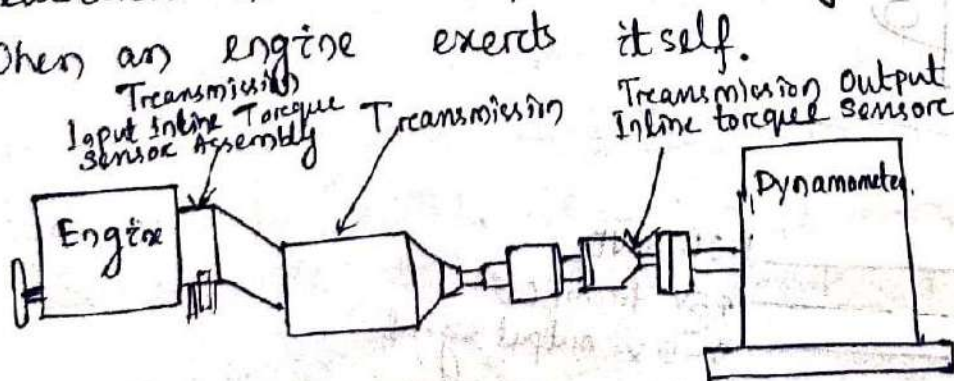 When an engine exerts itself.
Transmission
Input Inline Torque
Sensor Assembly
Transmission
Transmission Output
Inline torque Sensor
Engine
Dynamometer